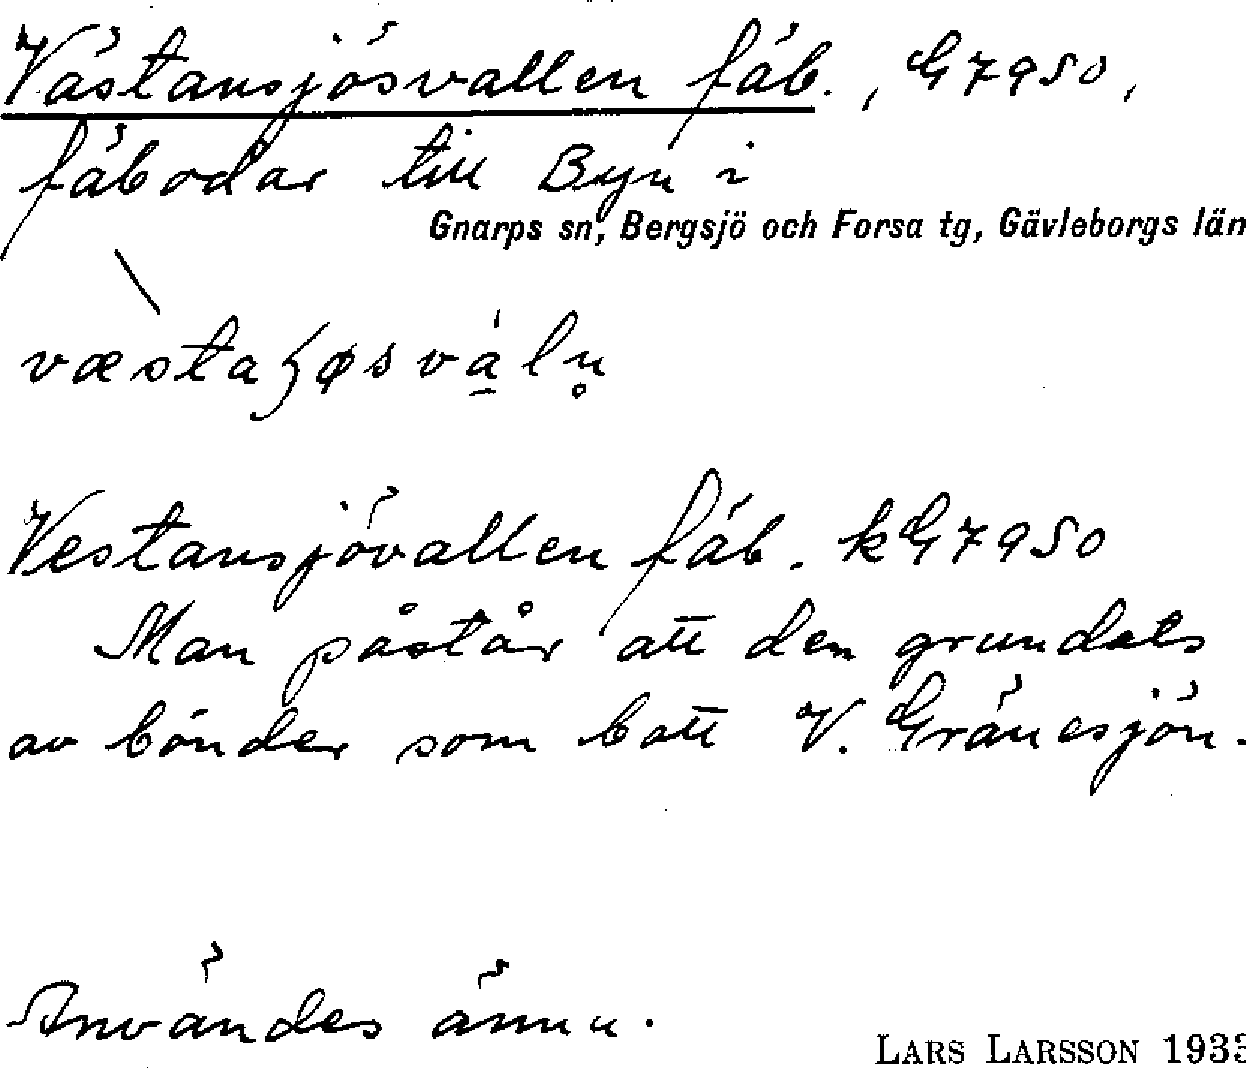 Västansjösvallen fäb., G7950,
fäbodar till Byn i
Gnarps sn, Bergsjö och Forsa tg, Gävleborgs län
Vestansjövallen fäb. kG7950
Man påstår att den grundats
av bönder som bott V. Gränesjön.
Användes ännu.
LARS LARSSON 1933